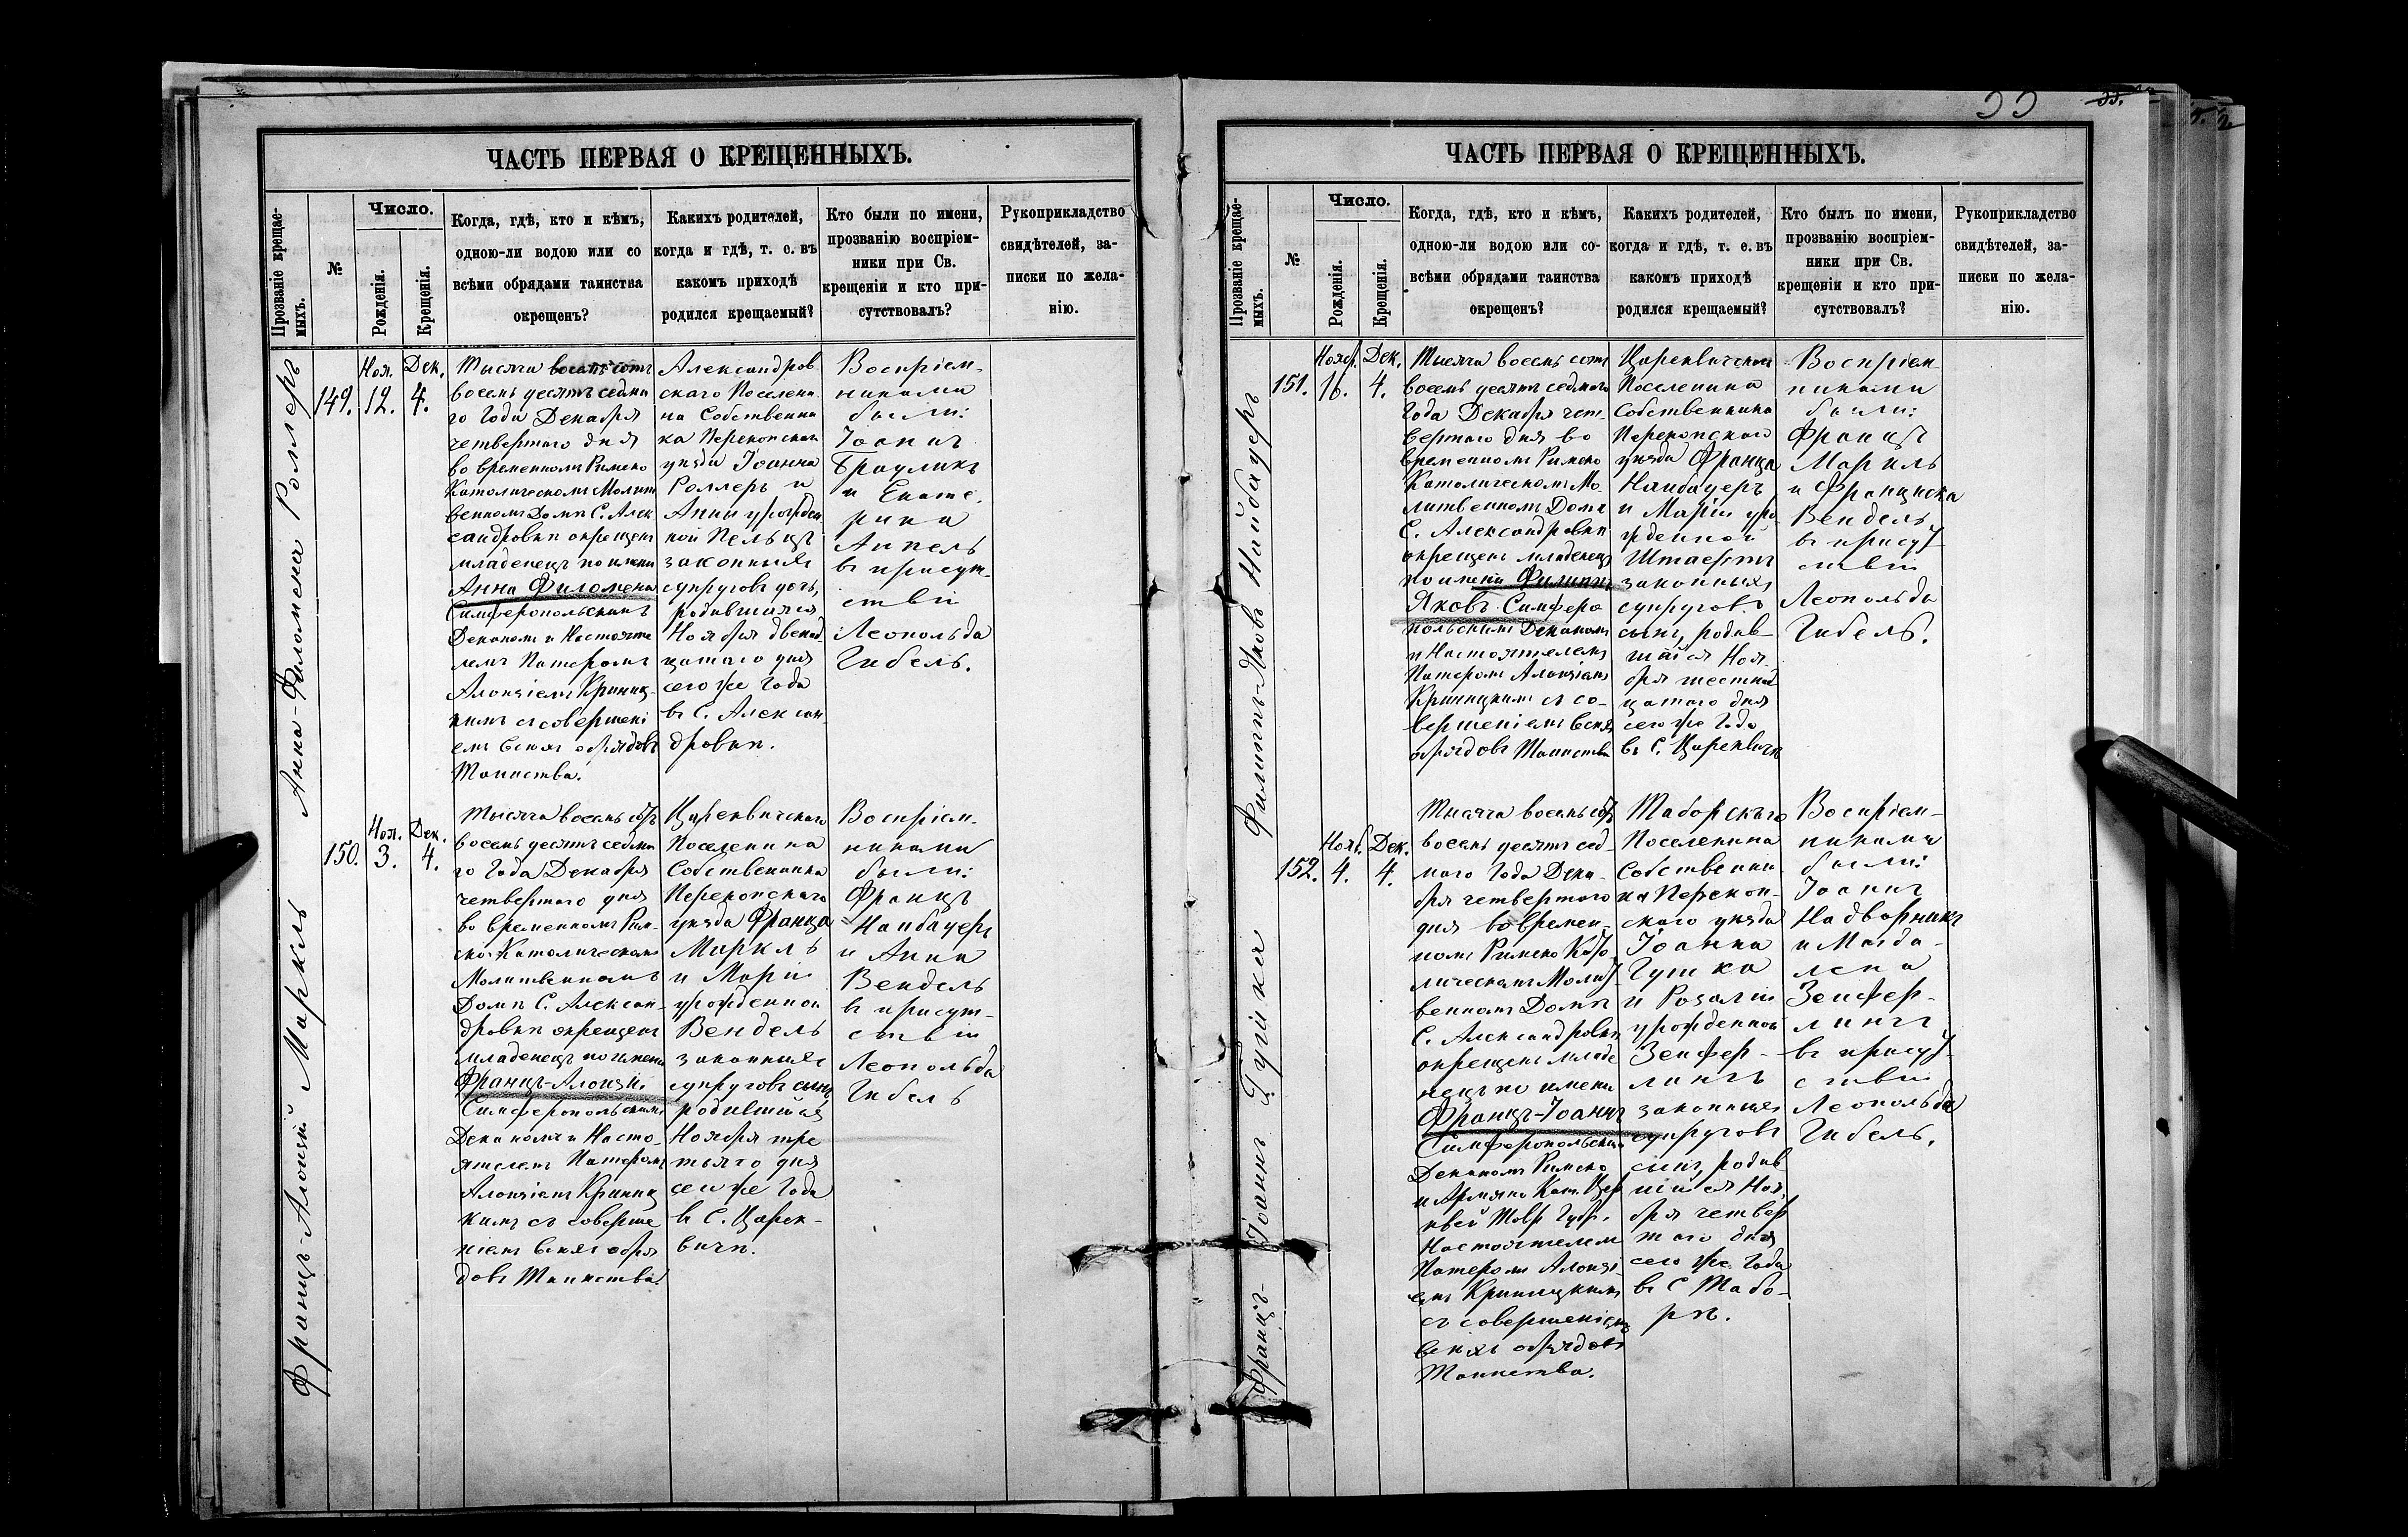 ЧАСТЬ ПЕРВАЯ О КРЕЩЕННЫХЪ.
Прозваніе крещае-
мыхъ.
№
Число.
Рожденія.
Крещенія.
Когда, гдѣ, кто и кѣмъ,
одною-ли водою или со
всѣми обрядами таинства
окрещенъ?
Какихъ родителей,
когда и гдѣ, т. е. въ
какомъ приходѣ
родился крещаемый?
Кто были по имени,
прозванію воспріем-
ники при Св.
крещеніи и кто при-
сутствовалъ?
Рукоприкладство
свидѣтелей, за-
писки по жела-
нію.
Анна-Филомена Роллеръ
149.
Ноя.
12.
Дек.
4.
Тысяча восемь сотъ
восемь десятъ седма
го Года Декабря
четвертаго дня
во временномъ Римско
Католическомъ Молит
венномъ Домѣ С. Алек
сандровки окрещенъ
младенецъ по имени
Анна Филомена
Симферопольскимъ
Деканомъ и Настояте
лемъ Патеромъ
Алоизіемъ Криниц
кимъ съ совершені
емъ всѣхъ обрядовъ
Таинства.
Александров
скаго Поселяни
на Собственни
ка Перекопскаго
уѣзда Іоанна
Роллеръ и
Анны урожден
ной Пельцъ
законныхъ
супруговъ дочь,
родившаяся
Ноября двенад
цатаго дня
сего же Года
въ С. Алексан-
дровкѣ.
Воспріем-
никами
были:
Іоаннъ
Брауликъ
и Екате
рина
Аппель
въ присут-
ствіи
Леопольда
Гибель.
Францъ-Алоизій Маркль
150.
Ноя.
3.
Дек.
4.
Тысяча восемь сотъ
восемь десятъ седма
го Года Декабря
четвертаго дня
во временномъ Рим-
ско Католическомъ
Молитвенномъ
Домѣ С. Алексан-
дровки окрещенъ
младенецъ по имени
Францъ-Алоизій
Симферопольскимъ
Деканомъ и Насто-
ятелемъ Патеромъ
Алоизіемъ Криниц
кимъ съ соверше
ніемъ всѣхъ обря
довъ Таинства.
Царевичскаго
Поселянина
Собственника
Перекопскаго
уѣзда Франца
Маркль
и Маріи
урожденной
Вендель
законныхъ
супруговъ сынъ,
родившійся
Ноября тре
тьяго дня
сего же Года
въ С. Царек-
вичѣ.
Воспріем-
никами
были:
Францъ
Найбауеръ
и Анна
Вендель
въ присут-
ствіи
Леопольда
Гибель
ЧАСТЬ ПЕРВАЯ О КРЕЩЕННЫХЪ.
Прозваніе крещае-
мыхъ.
№
Число.
Рожденія.
Крещенія.
Когда, гдѣ, кто и кѣмъ,
одною-ли водою или со-
всѣми обрядами таинства
окрещенъ?
Какихъ родителей,
когда и гдѣ, т. е. въ
какомъ приходѣ
родился крещаемый?
Кто былъ по имени,
прозванію воспріем-
ники при Св.
крещеніи и кто при-
сутствовалъ?
Рукоприкладство
свидѣтелей, за-
писки по жела-
нію.
Филиппъ-Яковъ Найбауеръ
151.
Нояб.
16.
Дек.
4.
Тысяча восемь сотъ
восемь десятъ седмаго
Года Декабря чет-
вертаго дня во
временномъ Римско
Католическомъ Мо-
литвенномъ Домѣ
С. Александровки
окрещенъ младенецъ
по имени Филиппъ
Яковъ Симферо
польскимъ Деканомъ
и Настоятелемъ
Патеромъ Алоизіемъ
Криницкимъ съ со-
вершеніемъ всѣхъ
обрядовъ Таинства
Цареквичскаго
Поселянина
Собственника
Перекопскаго
уѣзда Франца
Найбауеръ
и Маріи уро
жденной
законныхъ
супруговъ
сынъ, родив-
шійся Ноя
бря шестнад
цатаго дня
сего же Года
въ С. Цареквичѣ
Воспріем-
никами
были:
Францъ
Маркль
и Франциска
Вендель
въ присут-
ствіи
Леопольда
Гибель.
Францъ-Іоаннъ Гушка
152.
Нояб.
4.
Дек.
4.
Тысяча восемь сотъ
восемь десятъ сед-
маго Года Дека-
бря четвертаго
дня во времен-
номъ Римско Като
лическомъ Молит-
венномъ Домѣ
С. Александровки
окрещенъ младе
нецъ по имени
Францъ-Іоаннъ
Симферопольскимъ
Деканомъ Римско
и Армяно Кат. Цер
квей Тавр. Губ.
Настоятелемъ
Патеромъ Алоизі-
емъ Криницкимъ
съ совершеніемъ
всѣхъ обрядовъ
Таинства.
Таборскаго
Поселянина
Собственни
ка Перекоп-
скаго уѣзда
Іоанна
Гушка
и Розаліи
урожденной
Зейфер-
лингъ
законныхъ
супруговъ
сынъ, родив
шійся Ноя
бря четвер
таго дня
сего же Года
въ С Табо-
рѣ.
Воспріем-
никами
были:
Іоаннъ
Надворникъ
и Магда-
лена
Зейфер-
лингъ
въ присут-
ствіи
Леопольда
Гибель.